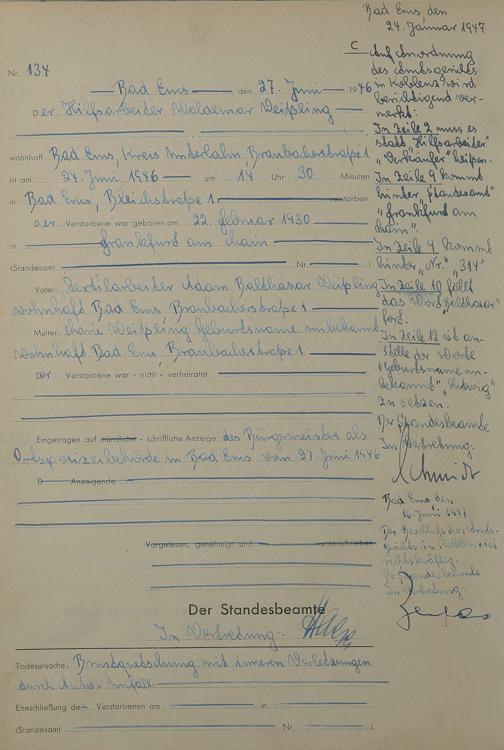 C
Nr. 134
Bad Ems den 27. Juni 1946
Der Hilfsarbeiter Waldemar Weißling
wohnhaft Bad Ems, Kreis Unterlahn, Braubacherstraße 1,
ist am 24. Juni 1946 um 14 Uhr 30 Minuten
in Bad Ems, Bleichstraße 1 verstorben.
Der Verstorbene war geboren am 22. februar 1930
in Frankfurt am Main
(Standesamt Nr. ).
Vater: Textilarbeiter Adam Balthasar Weißling
wohnhaft Bad Ems Braubacherstraße 1
Mutter: Marie Weißling Geburtsname unbekannt
wohnhaft Bad Ems, Braubacherstraße 1
Der Verstorbene war - nicht - verheiratet
Eingetragen auf mündliche - schriftliche Anzeige des Bürgermeisters als
Ortspolizeibehörde in Bad Ems vom 27. Juni 1946
D Anzeigende
Vorgelesen, genehmigt und unterschrieben
Der Standesbeamte
In Vertretung:
Todesursache: Brustquetschung mit inneren Verletzungen
durch Auto-Unfall
Eheschließung de Verstorbenen am in
(Standesamt Nr. ).
Bad Ems, den
24. Januar 1947
Auf Anordnung
des Amtsgerichts
in Koblenz wird
berichtigend ver-
merkt:
In Zeile 2 muss es
statt "Hilfsarbeiter"
"Verkäufer" heißen.
In Zeile 9 kommt
hinter "Standesamt"
"Frankfurt am
Main".
In Zeile 9 kommt
hinter "Nr." "314"
In Zeile 10 fällt
das Wort "Balthasar"
fort.
In Zeile 12 ist an-
stelle der Worte
"Geburtsname un-
bekannt" "Ludwig"
zu setzen.
Der Standesbeamte
In Vertretung:
Schmidt
Bad Ems, den
16. Juni 1947
Der Beschluß des Amts-
gerichts in Koblenz ist
rechtskräftig.
Der Standesbeamte
In Vertretung: